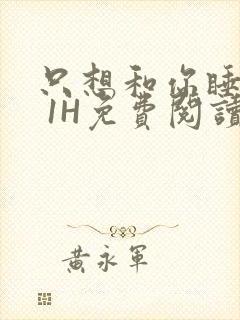 只想和你睡
1H免費閱讀
黃永軍